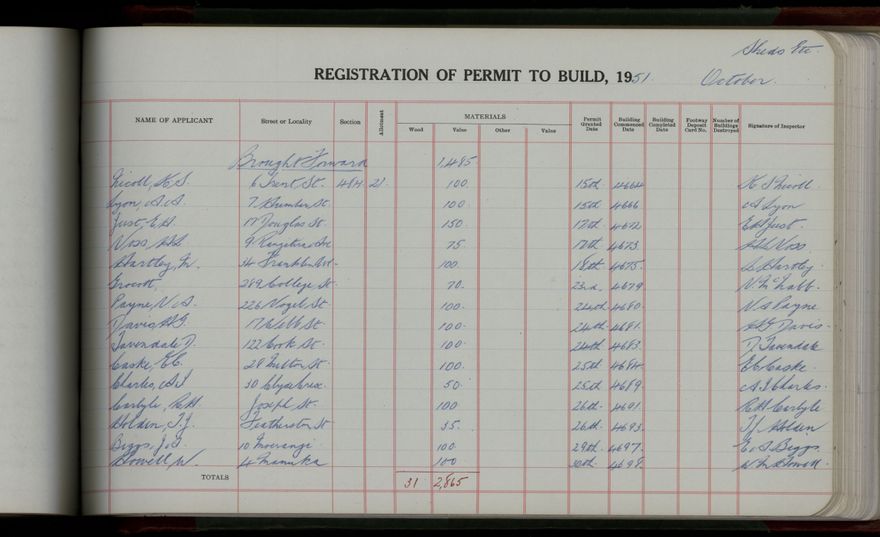 Sheds Etc.
REGISTRATION OF PERMIT TO BUILD, 1951 October.
NAME OF APPLICANT Street or Locality Section Allotment MATERIALS Wood Value Other Value Permit Granted Date Building Commenced Date Building Completed Date Footway Deposit Card No. Number of Buildings Destroyed Signature of Inspector
Brought Forward 1,485
Nicoll, K.S. 6 Trent St. 484 21 100 15th 4664 K S Nicoll
Lyon, A.A. 7 Humber St. 100 15th 4666 A Lyon
Just, E.A. 17 Douglas St. 150 17th 4672 E A Just.
Voss, 9 75 17th 4673 Voss
Hartley, 34 Franklin 100 18th 4675 Hartley
Grocott, 289 College St. 70. 23rd 4679 N McNabb.
Payne, N.A. 226 Vogel St 100. 24th 4680 N A Payne
Davis, A.G. 17 Webb St 100. 24th 4681. A G Davis.
Tavendale D. 122 Cook St. 100. 24th 4683. D. Tavendale
Caske, E.C. 29 Fulton St. 100. 25th 4684. E C Caske.
Charles, A.I 30 Clyde Cres. 50. 25th 4689. A I Charles.
Carlyle, R.H. Joseph St. 100 26th 4691. R H Carlyle
Holden, T.J. Featherston St 35. 26th 4693. T J Holden
Biggs, 10 Moerangi 100 29th 4697. Biggs.
Howell, W. 4 Manuka 100 30th 4698. W M Howell.
TOTALS 31 2,865